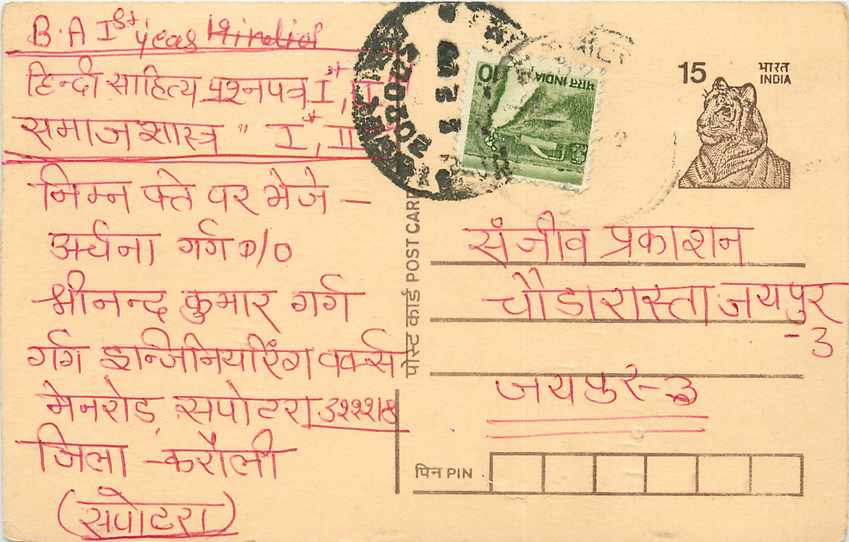 B.A Ist year Hindi
हिन्दी साहित्य प्रश्नपत्र Ist, II
समाजशास्त्र " Ist, II
निम्न पते पर भेजे -
अर्चना गर्ग D/O
श्रीनन्द कुमार गर्ग
गर्ग इन्जिनियरिंग वर्क्स
मेनरोड़ सपोटरा
जिला - करौली
(सपोटरा)
पोस्ट कार्ड POST CARD
भारत INDIA
10
15
भारत
INDIA
संजीव प्रकाशन
चौडारास्ता जयपुर
-3
जयपुर-3
पिन PIN